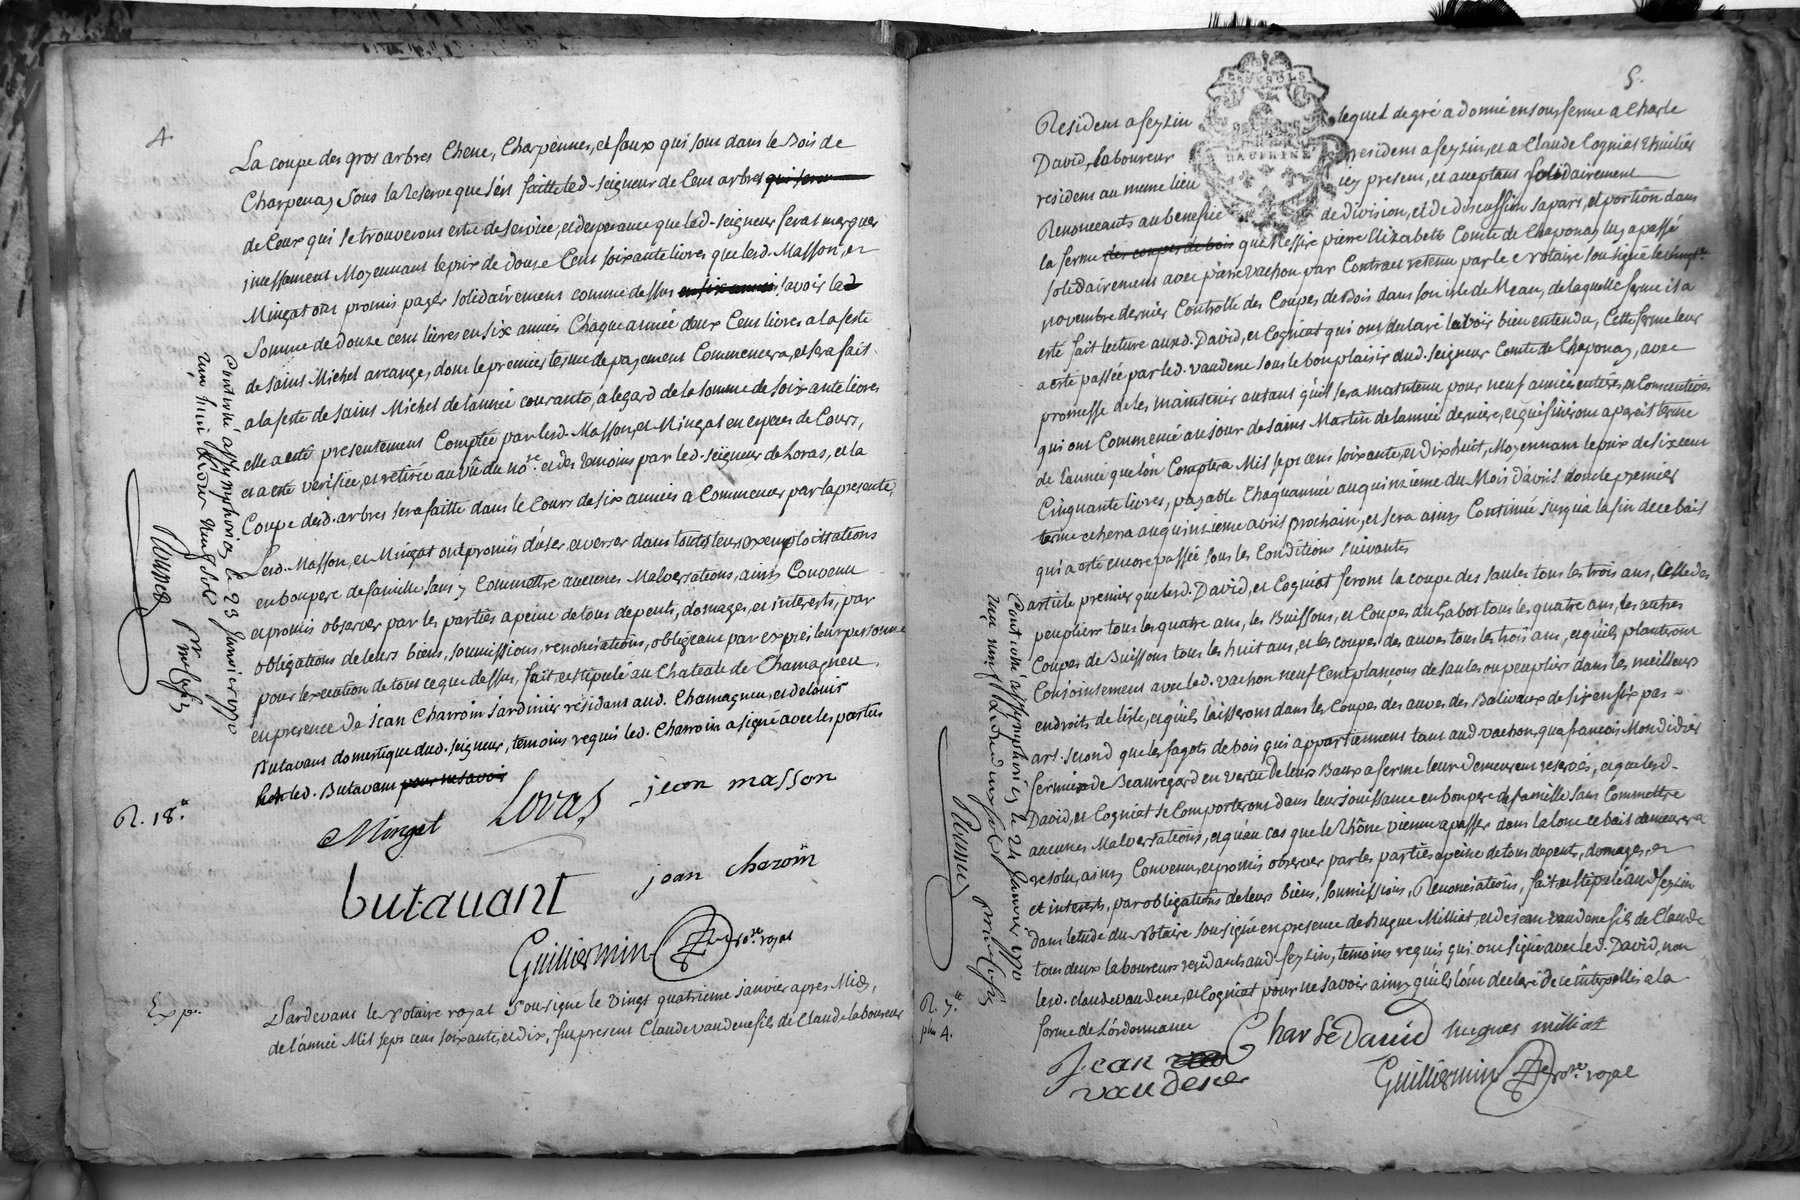 4
La coupe des gros arbres Chene, Charpennes, et faux qui sont dans le Bois de
Charpenay sous la Reserve que s'est faitte led. seigneur de Cent arbres qui seron
de Ceux qui se trouveront estre de service, et d'esperance que led. seigneur ferat marquer
incessament Moyennant le prix de douze Cent soixante livres que lesd. Masson, et
Mingat ont promis payer solidairement comme dessus en six années savoir la d
somme de douze cent livres en six années Chaque année deux Cent livres a la feste
de saint Michel arcange, dont le premier terme de payement Commencera, et sera fait
a la feste de saint Michel de l'année courante, a legard de la somme de soixante livres
elle a esté presentement Comptée par lesd. Masson, et Mingat en especes de Cours,
et a esté verifiée, et retirée au vû du no.re et des temoins par led. seigneur de Loras, et la
Coupe desd. arbres sera faitte dans le Cours de six années a Commencer par la presente,
Lesd. Masson, et Mingat ont promis d'user et verser dans toutes leurs exploitations
en bon pere de famille sans y Commettre aucunes Malversations, ainsy Convenu
et promis observer par les parties a peine de tous depents, domages, et interests, par
obligations de leurs biens, soumissions, renonciations, obligeant par exprès leur personne
pour l'execution de tout ce que dessus, fait et stipulé au Chateau de Chamagneu
en presence de jean Charroin jardinier residant aud. Chamagneu, et de louis
Butavant domestique dud. seigneur, temoins requis led. Charroin a signé avec les parties
led. Butavant pour ne savoir
Controllé a st symphorien le 23 janvier 1770
R. 18.s
Mingat Loras jean masson
butavant jean charoin
Guilliermin no.re royal
Exp.
Pardevant le Notaire royal soussigné le vingt quatrieme janvier apres Midy,
de l'année Mil sept cent soixante, et dix, fut present Claude vaudene fils de Claude laboureur
5.
Resident a feyzin lequel de gré a donné en sous ferme a Charle
David, laboureur resident a feyzin, et a Claude Cogniat
resident au meme lieu icy present, et acceptant solidairement
Renonceants au benefice de division, et de discussion sa part, et portion dans
la ferme des coupes de bois que Messire pierre Elizabeth Comte de Chaponay luy a passé
solidairement avec pierre vachon par Contract retenu par le Notaire soussigné le vingt
novembre dernier Controllé des Coupes de Bois dans son isle de Mean, de laquelle ferme il a
esté fait lecture auxd. David, et Cogniat qui ont declaré l'avoir bien entendu, Cette ferme leur
a esté passée par led. vaudene sous le bon plaisir dud. seigneur Comte de Chaponay, avec
promesse de les maintenir autant qu'il sera maintenu pour neuf années entieres, et Consecutives
qui ont Commencé au jour de saint Martin de l'année derniere, et qui finiront a pareil terme
de l'année que l'on Comptera Mil sept cent soixante, et dix huit, Moyennant le prix de six cent
Cinquante livres, payable Chaqu'année au quinzieme du Mois d'avril dont le premier
terme echerra au quinzieme avril prochain, et sera ainsy Continué jusqu'à la fin de ce bail
qui a esté encore passé sous les Conditions suivantes
article premier que lesd. David, et Cogniat feront la coupe des saules tous les trois ans, celle des
peupliers tous les quatre ans, les Buissons, et Coupes du Gabot tous les quatre ans, les autres
Coupes de Buissons tous les huit ans, et les coupes des auves tous les trois ans, et qu'ils planteront
Conjointement avec led. vachon neuf Cent plançons de saules ou peupliers dans les meilleurs
endroits de l'isle, et qu'ils laisseront dans les Coupes des auves des Balivaux de six en six pas
art. second que les fagots de bois qui appartiennent tant aud vachon, qu'a françois Mondidier
fermier de Beauregard en vertu de leurs Baux a ferme leur demeurent reservés, et que lesd.
David, et Cogniat se Comporteront dans leur jouissance en bon pere de famille sans Commettre
aucunes Malversations, et qu'au cas que le Rhône vienne a passer dans la lone ce bail demeurera
resolu, ainsy Convenu, et promis observer par les parties a peine de tous depents, domages, et
et interests, par obligations de leurs biens, soumissions, Renonciations, fait, et stipulé aud feyzin
dans l'etude du Notaire soussigné en presence de hugue Milliat, et de jean vaudene fils de Claude
tous deux laboureurs residants aud. feyzin, temoins requis qui ont signé avec led. David, non
lesd. claude vaudene, et Cogniat pour ne savoir ainsy qu'ils l'ont declaré de ce interpellés a la
forme de l'ordonnance
Controllé a st symphorien le 24 janvier 1770
R. 7.s
plus 4.
Charle David hugues milliat
jean vaudene
Guilliermin no.re royal